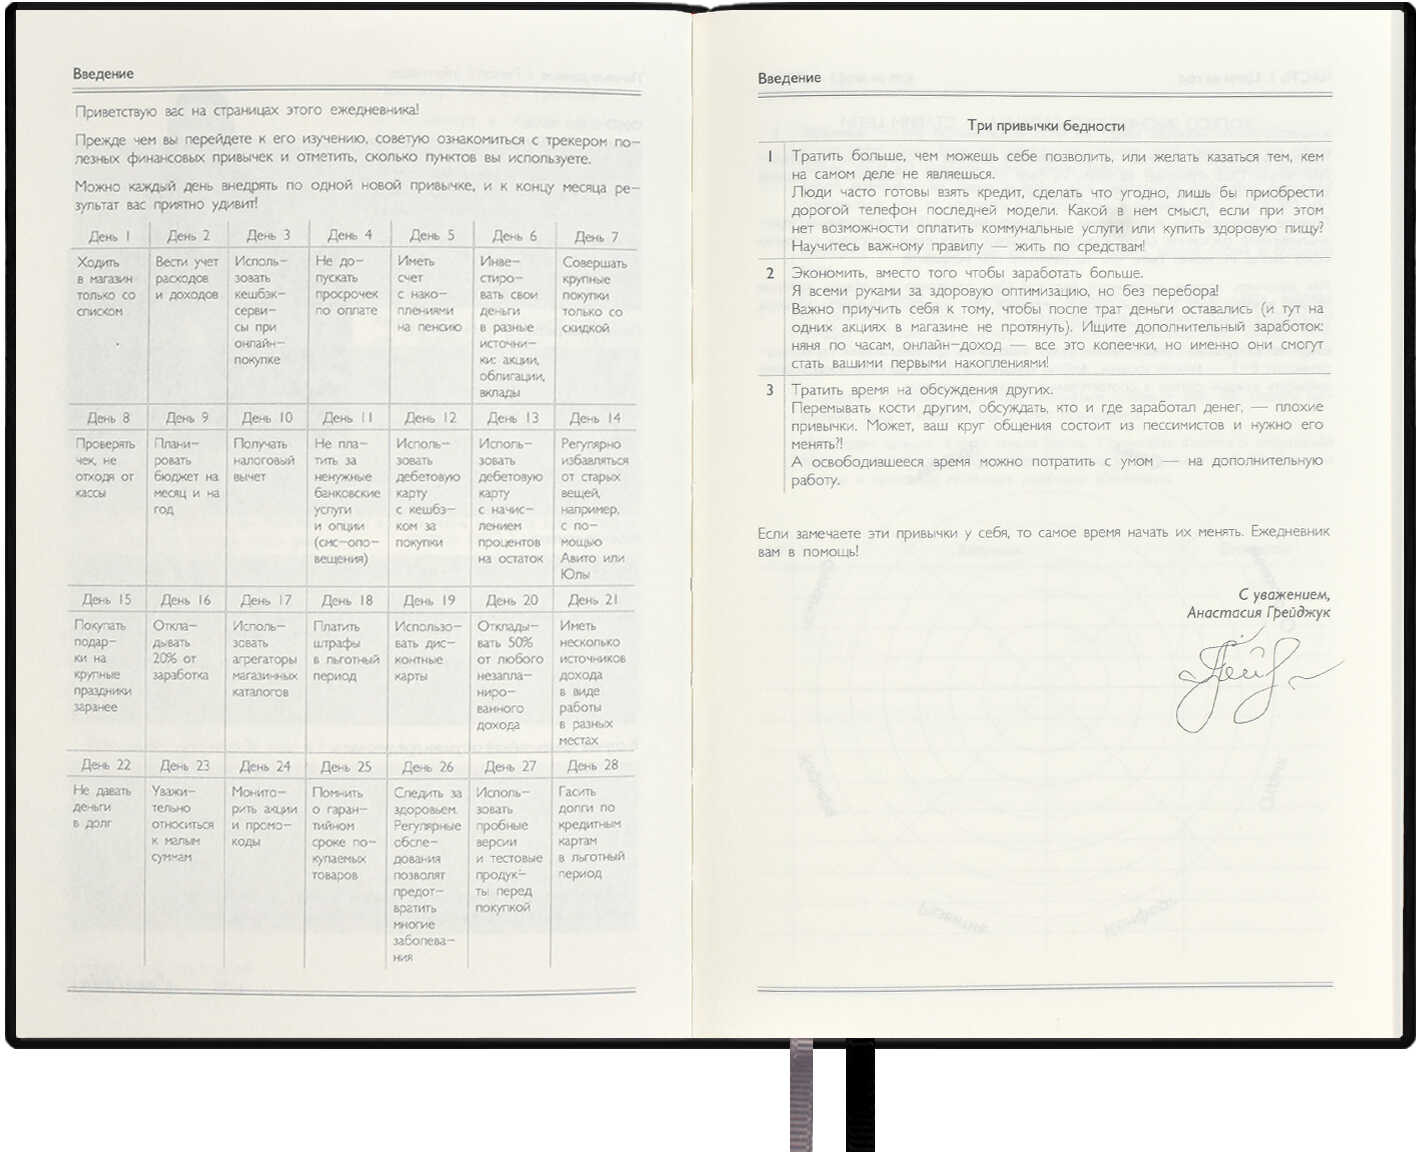 Введение
Приветствую вас на страницах этого ежедневника!
Прежде чем вы перейдете к его изучению, советую ознакомиться с трекером по-
лезных финансовых привычек и отметить, сколько пунктов вы используете.
Можно каждый день внедрять по одной новой привычке, и к концу месяца ре-
зультат вас приятно удивит!
День 1
День 2
День 3
День 4
День 5
День 6
День 7
Ходить
в магазин
только со
списком
Вести учет
расходов
и доходов
Исполь-
зовать
кешбэк-
серви-
сы при
онлайн-
покупке
Не до-
пускать
просрочек
по оплате
Иметь
счет
с нако-
плениями
на пенсию
Инве-
стиро-
вать свои
деньги
в разные
источни-
ки: акции,
облигации,
вклады
Совершать
крупные
покупки
только со
скидкой
День 8
День 9
День 10
День 11
День 12
День 13
День 14
Проверять
чек, не
отходя от
кассы
Плани-
ровать
бюджет на
месяц и на
год
Получать
налоговый
вычет
Не пла-
тить за
ненужные
банковские
услуги
и опции
(смс-опо-
вещения)
Исполь-
зовать
дебетовую
карту
с кешбэ-
ком за
покупки
Исполь-
зовать
дебетовую
карту
с начис-
лением
процентов
на остаток
Регулярно
избавляться
от старых
вещей,
например,
с по-
мощью
Авито или
Юлы
День 15
День 16
День 17
День 18
День 19
День 20
День 21
Покупать
подар-
ки на
крупные
праздники
заранее
Откла-
дывать
20% от
заработка
Исполь-
зовать
агрегаторы
магазинных
каталогов
Платить
штрафы
в льготный
период
Использо-
вать дис-
контные
карты
Отклады-
вать 50%
от любого
незапла-
ниро-
ванного
дохода
Иметь
несколько
источников
дохода
в виде
работы
в разных
местах
День 22
День 23
День 24
День 25
День 26
День 27
День 28
Не давать
деньги
в долг
Уважи-
тельно
относиться
к малым
суммам
Монито-
рить акции
и промо-
коды
Помнить
о гаран-
тийном
сроке по-
купаемых
товаров
Следить за
здоровьем.
Регулярные
обсле-
дования
позволят
предот-
вратить
многие
заболева-
ния
Исполь-
зовать
пробные
версии
и тестовые
продук-
ты перед
покупкой
Гасить
долги по
кредитным
картам
в льготный
период
Введение
Три привычки бедности
1 Тратить больше, чем можешь себе позволить, или желать казаться тем, кем
на самом деле не являешься.
Люди часто готовы взять кредит, сделать что угодно, лишь бы приобрести
дорогой телефон последней модели. Какой в нем смысл, если при этом
нет возможности оплатить коммунальные услуги или купить здоровую пищу?
Научитесь важному правилу — жить по средствам!
2 Экономить, вместо того чтобы заработать больше.
Я всеми руками за здоровую оптимизацию, но без перебора!
Важно приучить себя к тому, чтобы после трат деньги оставались (и тут на
одних акциях в магазине не протянуть). Ищите дополнительный заработок:
няня по часам, онлайн-доход — все это копеечки, но именно они смогут
стать вашими первыми накоплениями!
3 Тратить время на обсуждения других.
Перемывать кости другим, обсуждать, кто и где заработал денег, — плохие
привычки. Может, ваш круг общения состоит из пессимистов и нужно его
менять?!
А освободившееся время можно потратить с умом — на дополнительную
работу.
Если замечаете эти привычки у себя, то самое время начать их менять. Ежедневник
вам в помощь!
С уважением,
Анастасия Грейджук